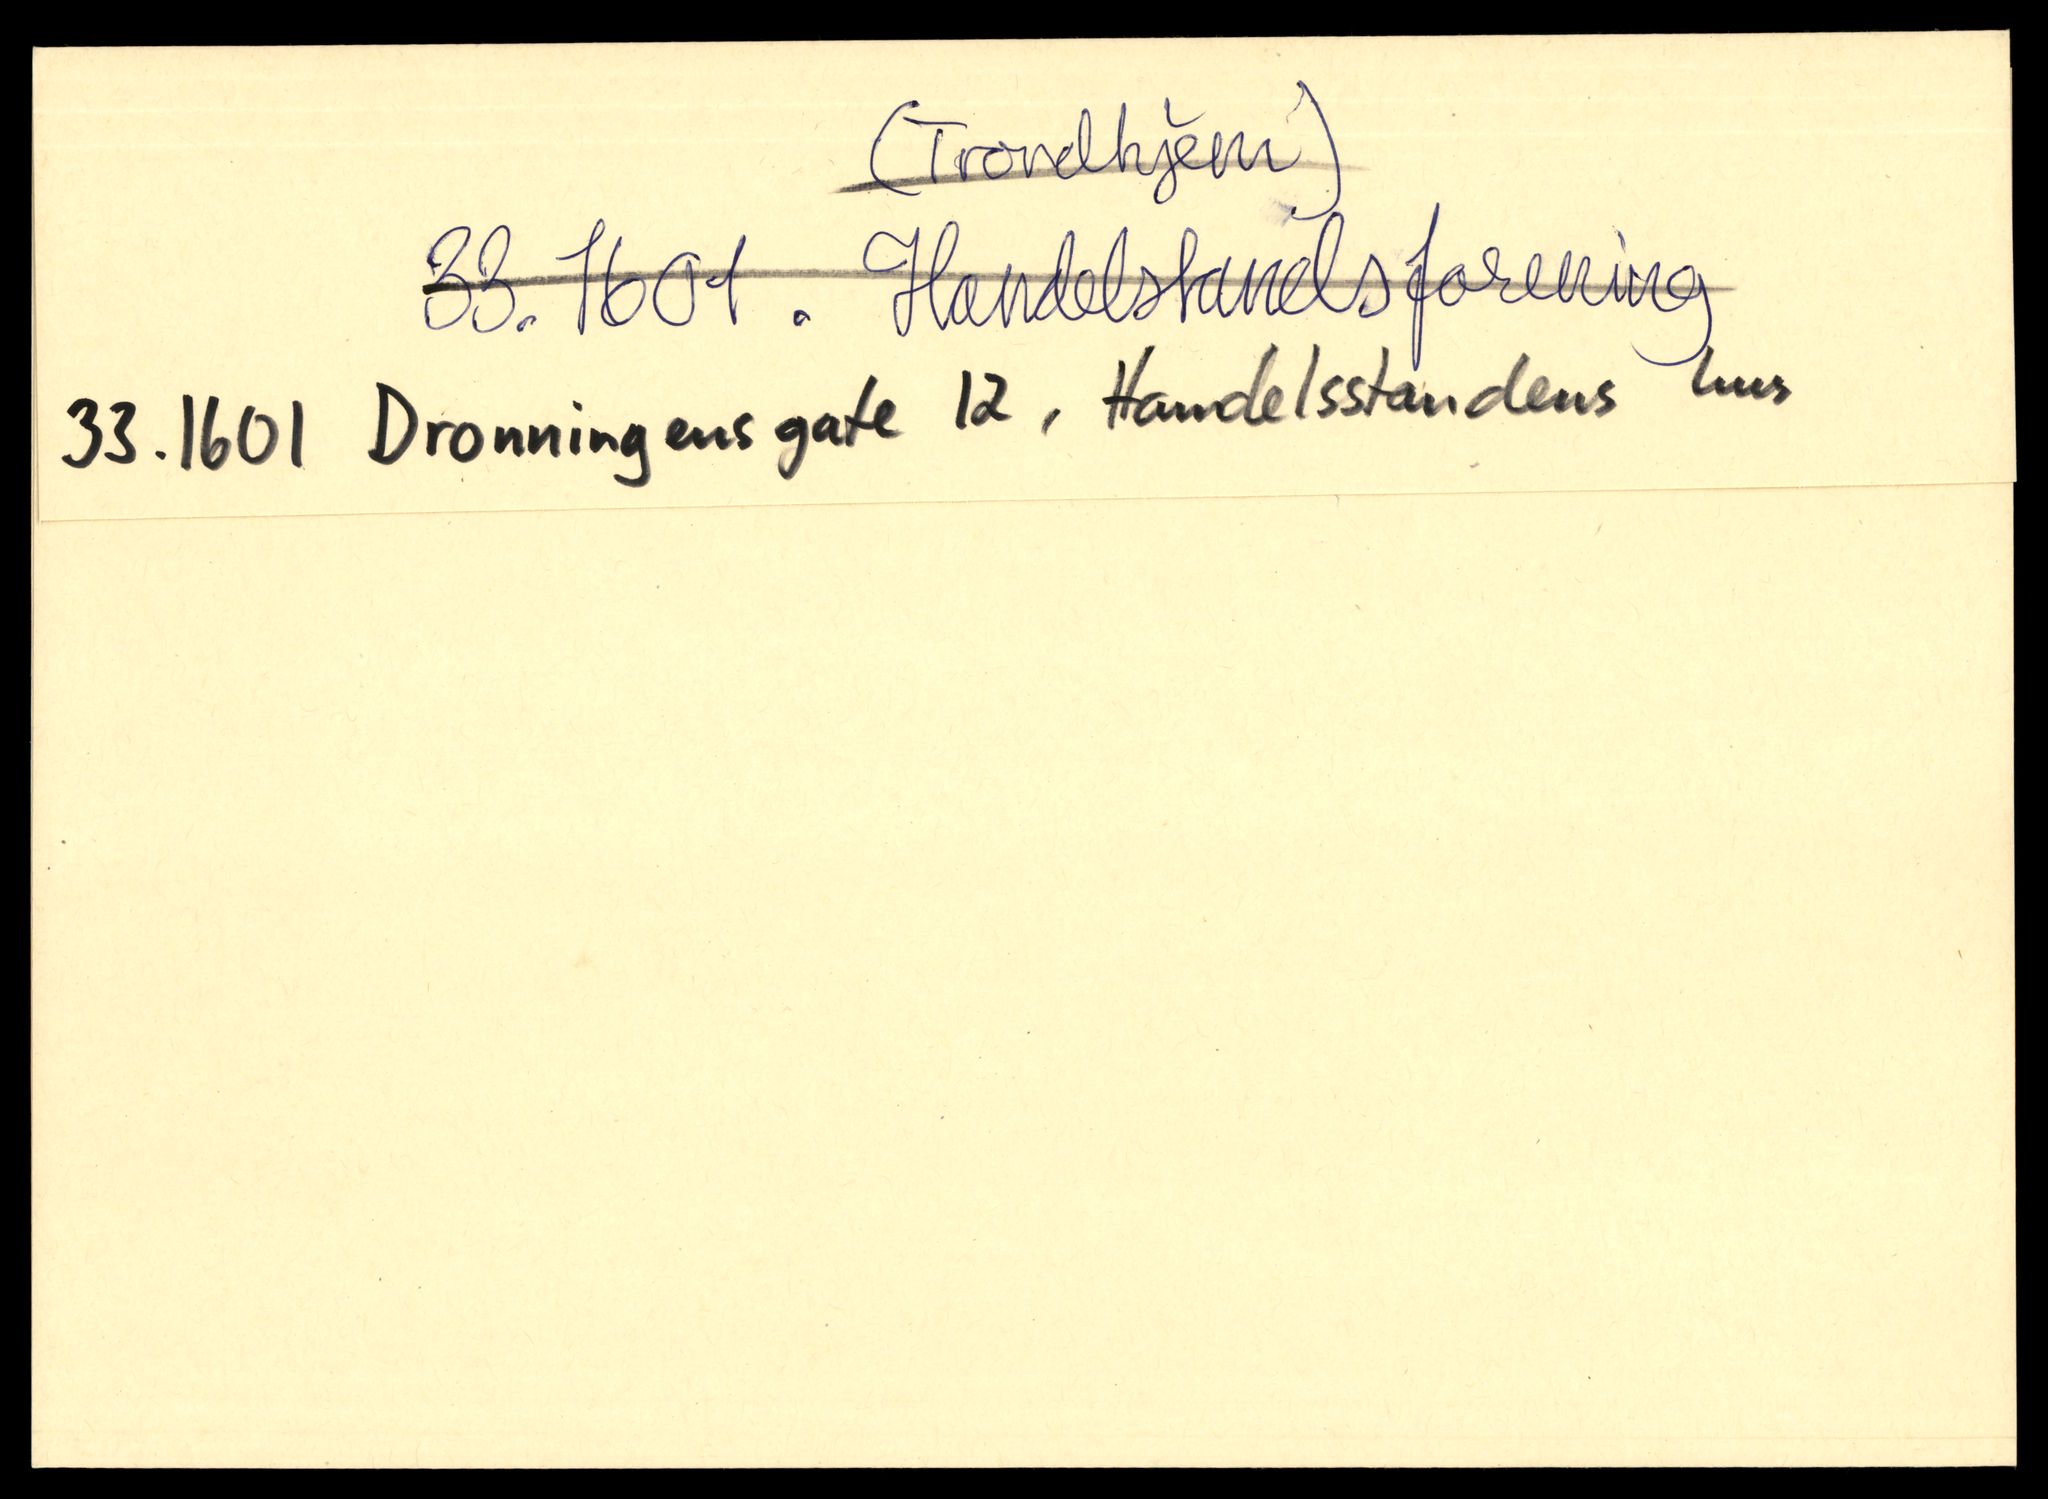 (Trondhjem)
33.1601. Handelstandsforening
33.1601 Dronningensgate 12, Handelsstandens hus